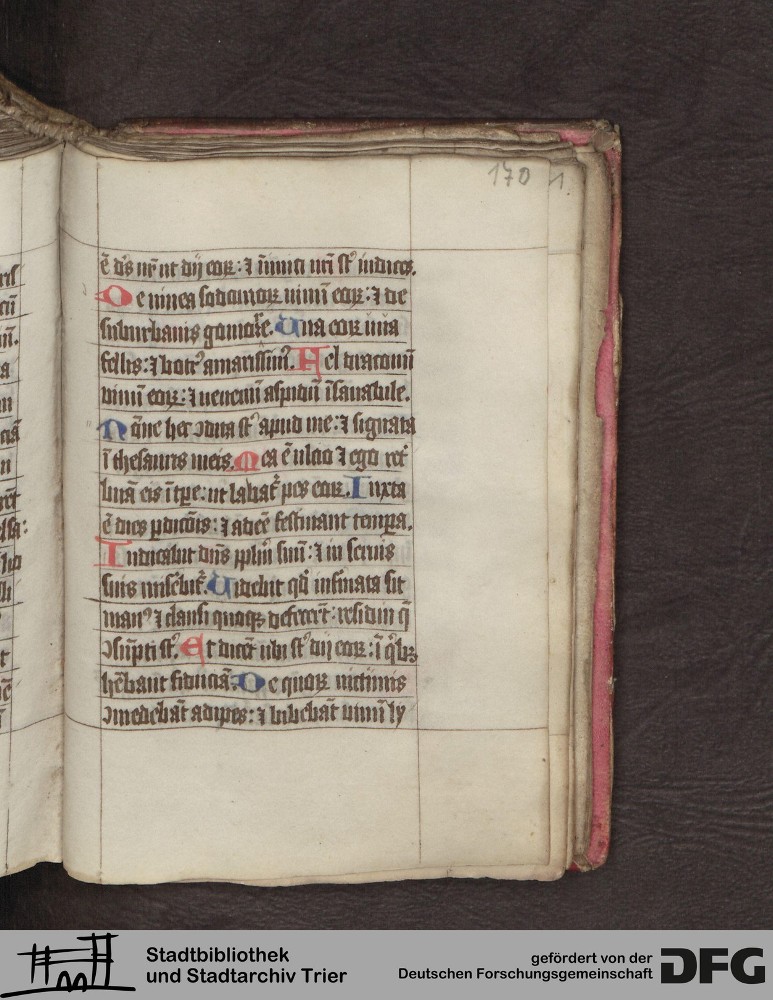 170 1.
ē dn̄s nr̄ ut dij eoꝝ: ⁊ inimici nr̄i st̄ iudices.
De uinea sodomoꝝ uinū eoꝝ: ⁊ de
suburbanis gomorre. Uua eoꝝ uua
fellis: ⁊ botrꝰ amarissimꝰ. Fel draconū
uinū eoꝝ: ⁊ uenenū aspidū īsanabile.
Nōne hec ꝯdita st̄ apud me: ⁊ signata
ī thesauris meis. Mea ē ulcio ⁊ ego ret̄
buā eis ī tp̄e: ut labat̄ pes eoꝝ. Iuxta
ē dies p̱dicōis: ⁊ adeē festinant tempora.
Iudicabit dn̄s pplm̄ suū: ⁊ in seruis
suis misēbit̄. Uidebit qd̄ infirmata sit
manꝰ ⁊ clausi quoqꝫ defecerūt: residui q̄
ꝯsūpti st̄. Et dicēt ubi st̄ dij eoꝝ: ī q̇bꝫ
hēbant fiduciā. De quoꝝ uictimis
ꝯmedebāt adipes: ⁊ bibebāt uinū ly
Stadtbibliothek
und Stadtarchiv Trier
gefördert von der
Deutschen Forschungsgemeinschaft
DFG